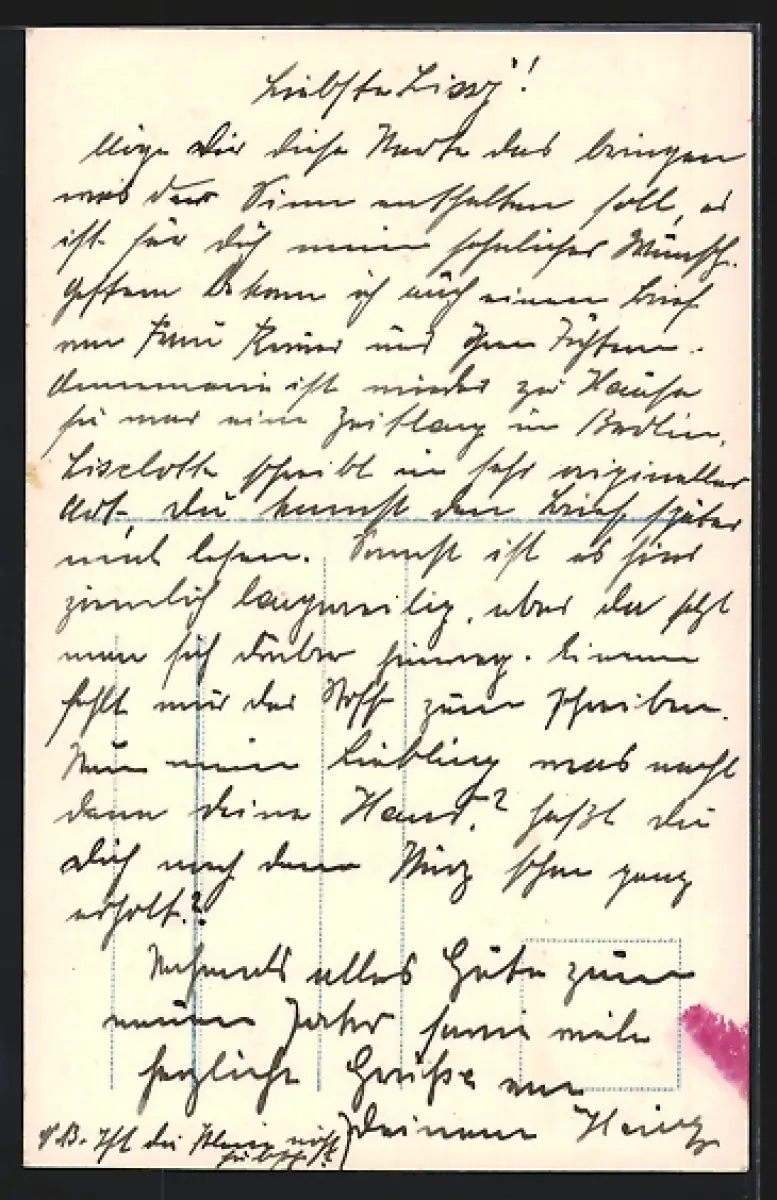 Liebste Lissy!
Möge Dir diese Karte das bringen
was der Sinn enthalten soll, es
ist für Dich mein sehnlichster Wunsch.
Gestern bekam ich auch einen Brief
von Frau und ihren Töchtern.
Annemarie ist wieder zu Hause
sie war eine Zeitlang in Berlin,
Liselotte schreibt in sehr origineller
Art, Du kannst den Brief später
mal lesen. Sonst ist es hier
ziemlich langweilig, aber da setzt
man sich drüber hinweg. Einem
fehlt nur der Stoff zum schreiben.
Nun mein Liebling was macht
denn deine Hand? hast du
Dich nach dem schon ganz
erholt?
Nochmals alles Gute zum
neuen Jahr sowie viele
herzliche Grüße von
Deinem Heinz
P.B. Ist die Kleine nicht
hübsch?